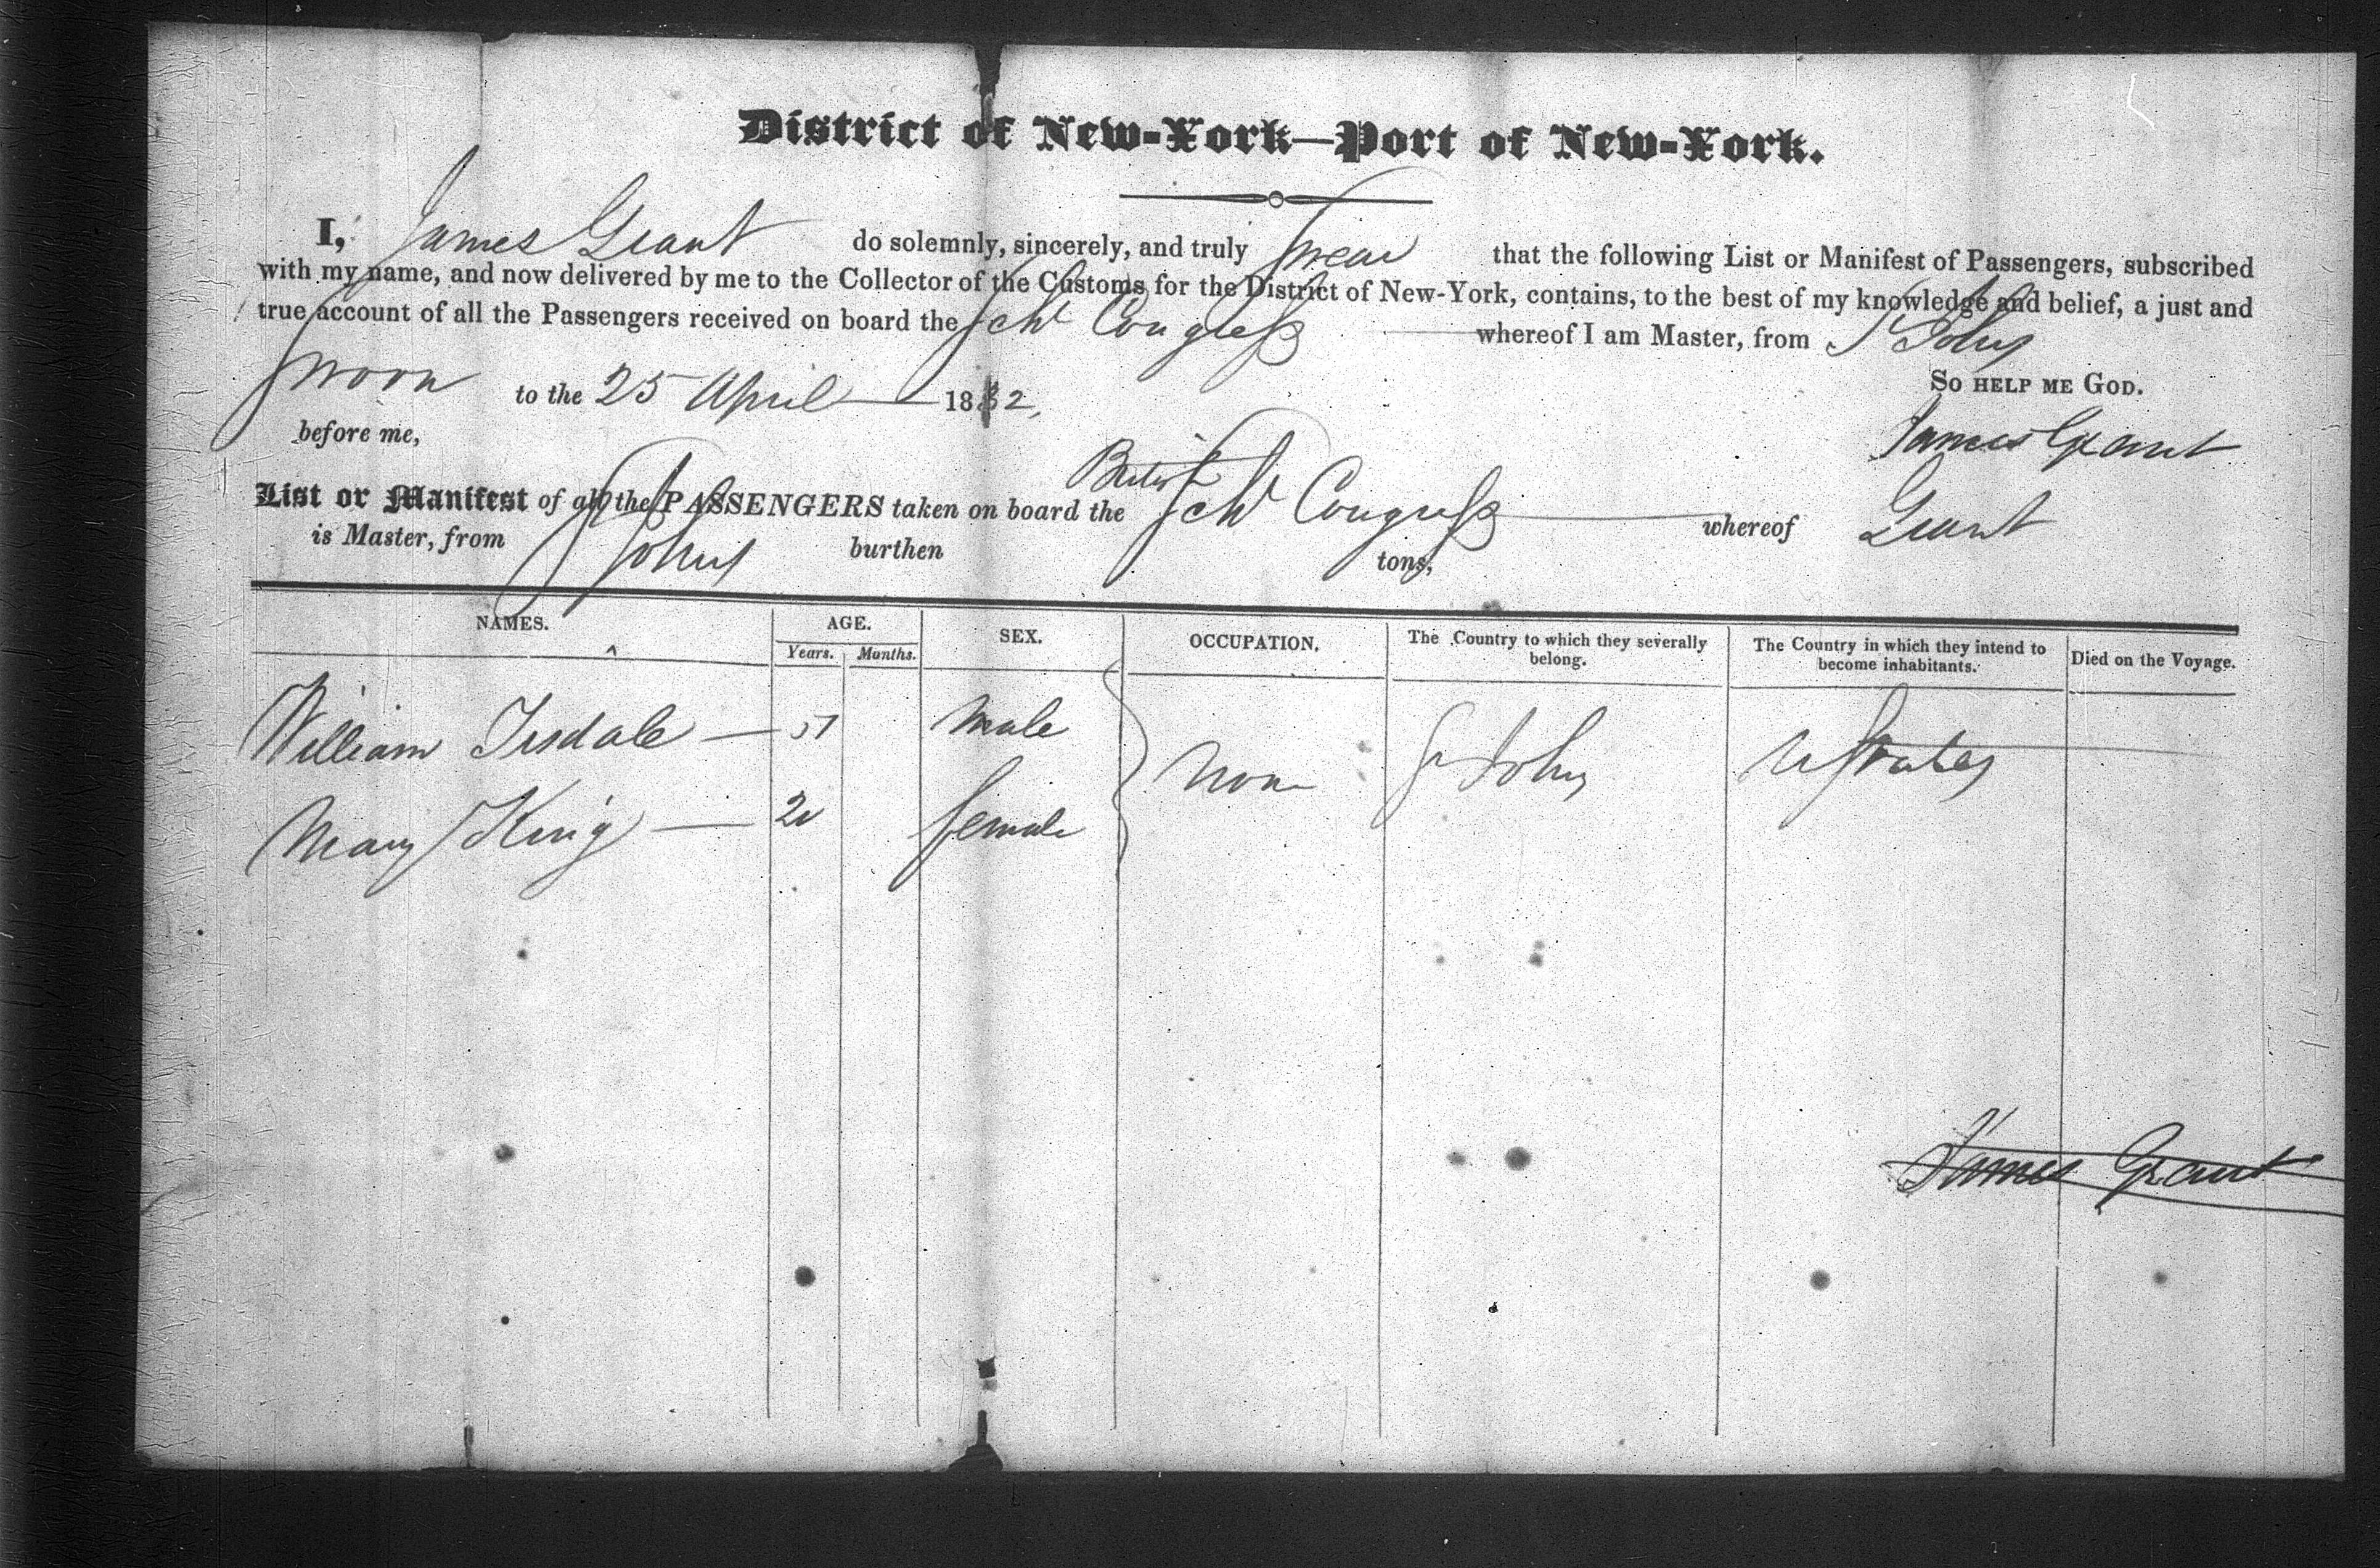 District of New-York—Port of New-York.
I, James Grant do solemnly, sincerely, and truly Swear that the following List or Manifest of Passengers, subscribed
with my name, and now delivered by me to the Collector of the Customs for the District of New-York, contains, to the best of my knowledge and belief, a just and
true account of all the Passengers received on board the Schr Congress whereof I am Master, from St Johns
Sworn to the 25 April 1832,
So help me God.
before me,
James Grant
List or Manifest of all the PASSENGERS taken on board the British Schr Congress whereof Grant
is Master, from St Johns burthen tons,
NAMES. AGE. SEX. OCCUPATION. The Country to which they severally belong. The Country in which they intend to become inhabitants. Died on the Voyage.
Years. Months.
William Tisdale — male
None St Johns U States
Mary King — female
James Grant